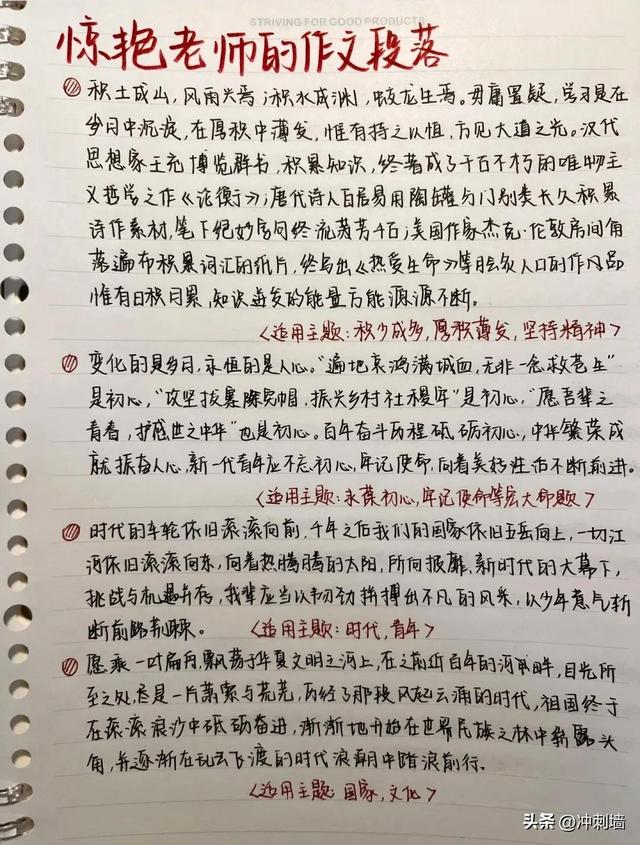 STRIVING FOR GOOD PRODUCTS
惊艳老师的作文段落
积土成山，风雨兴焉；积水成渊，蛟龙生焉。毋庸置疑，学习是在
岁月中沉淀，在厚积中薄发，惟有持之以恒，方见大道之光。汉代
思想家王充博览群书，积累知识，终著成了千古不朽的唯物主
义哲学之作《论衡》；唐代诗人白居易用陶罐分门别类长久积累
诗作素材，笔下绝妙诗句终流芳千古；美国作家杰克·伦敦房间角
落遍布积累词汇的纸片，终写出《热爱生命》等脍炙人口的作品
惟有日积月累，知识迸发的能量方能源源不断。
<适用主题：积少成多，厚积薄发，坚持精神>
变化的是岁月，永恒的是人心。“遍地哀鸿满城血，无非一念救苍生”
是初心，“攻坚拔寨除穷帽，振兴乡村社稷牢”是初心，“愿吾辈之
青春，护盛世之中华”也是初心。百年奋斗历程砥砺初心，中华繁荣成
就振奋人心，新一代青年应不忘初心，牢记使命，向着美好生活不断前进。
<适用主题：永葆初心，牢记使命等宏大命题>
时代的车轮依旧滚滚向前，千年之后我们的国家依旧五岳向上，一切江
河依旧滚滚向东，向着热腾腾的太阳，所向披靡，新时代的大幕下，
挑战与机遇并存，我辈应当以韧劲拼搏出不凡的风采，以少年意气斩
断前路荆棘。<适用主题：时代，青年>
愿乘一叶扁舟，飘荡于华夏文明之河上，在之前近百年的河畔，目光所
至之处，尽是一片萧索与荒芜，历经了那段风起云涌的时代，祖国终于
在滚滚浪沙中砥砺奋进，渐渐地开始在世界民族之林中崭露头
角，并逐渐在乱云飞渡的时代浪潮中踏浪前行．
<适用主题：国家，文化>
头条@冲刺墙